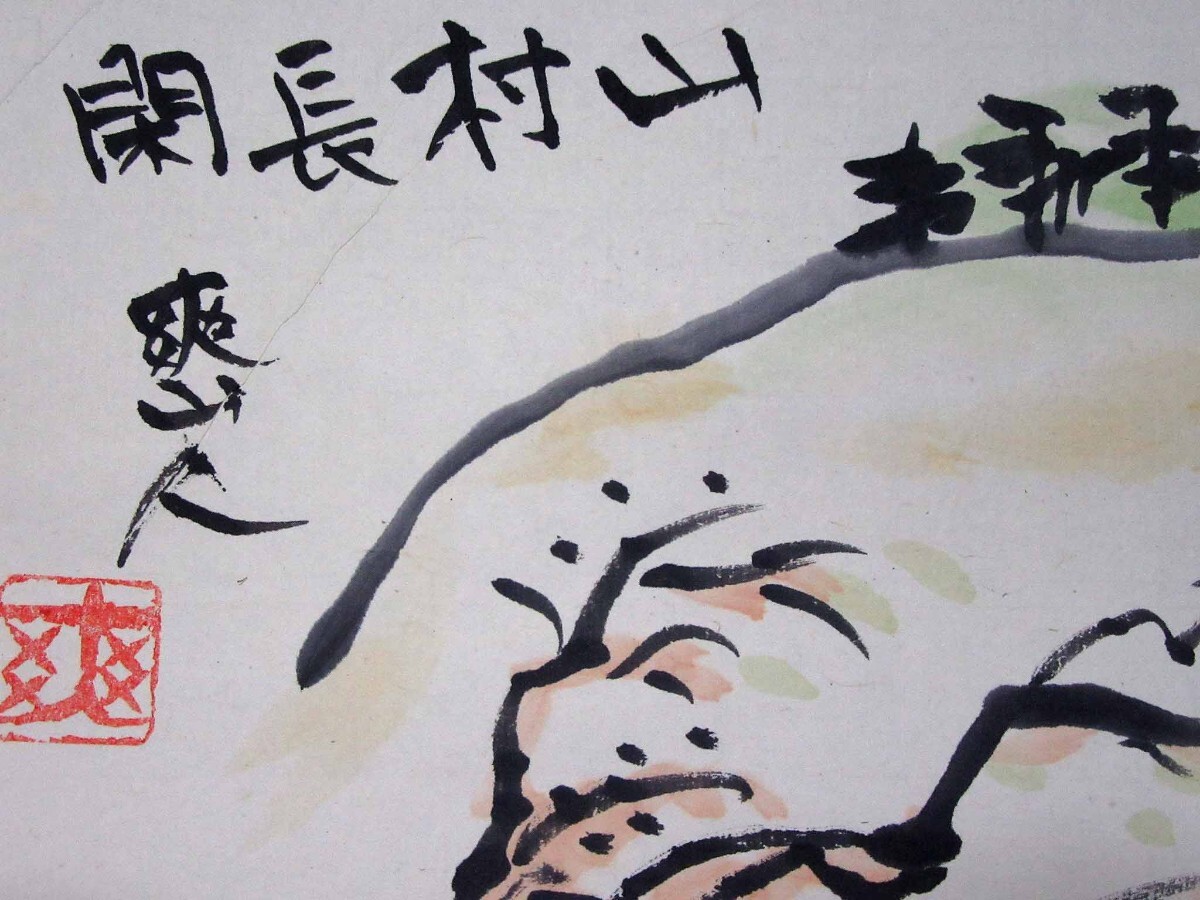 山村長閑
爽山人
爽